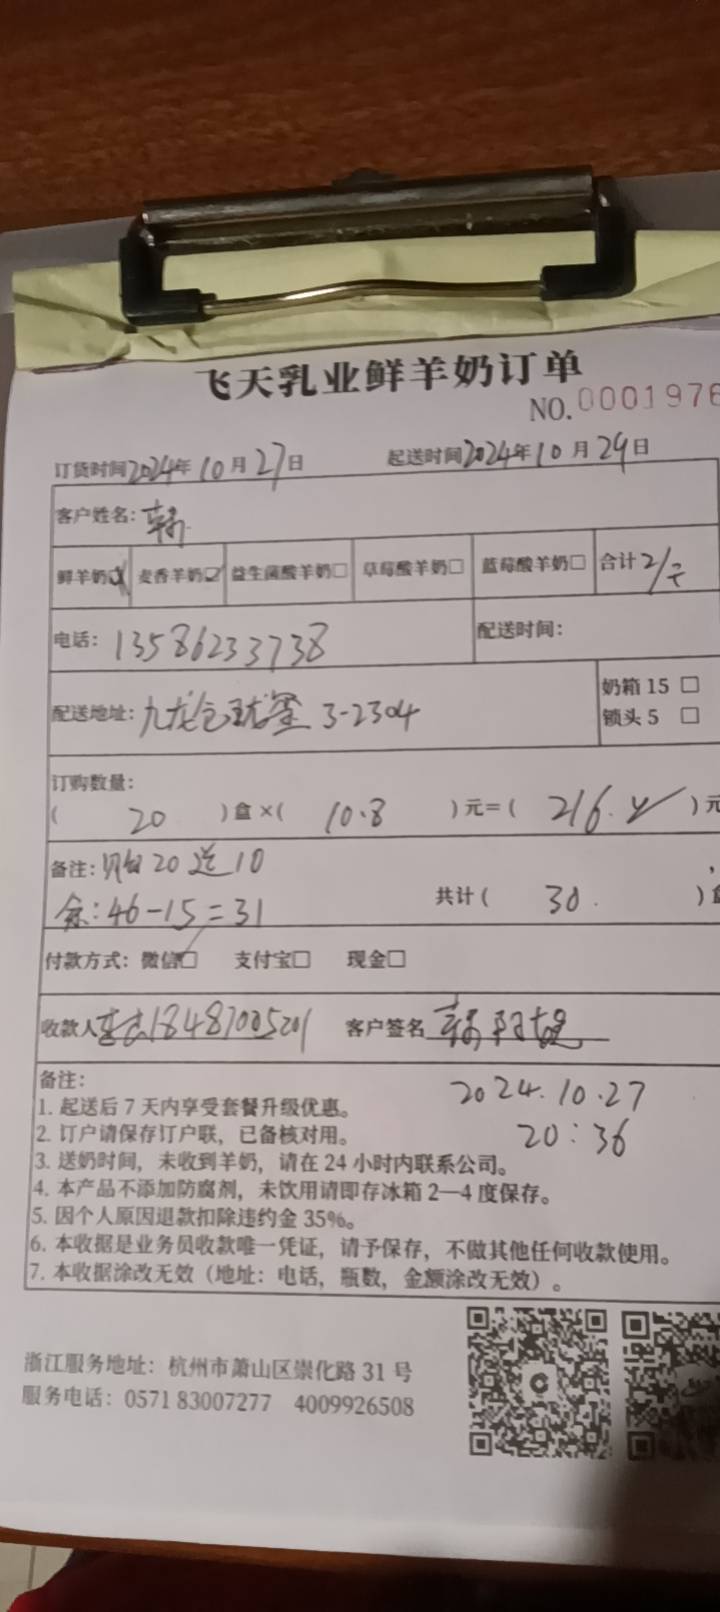 飞天乳业鲜羊奶订单
NO.0001976
订货时间2024年10月27日 起送时间2024年10月29日
客户姓名：韩
鲜羊奶☑ 麦香羊奶☑ 益生菌酸羊奶□ 草莓酸羊奶□ 蓝莓酸羊奶□ 合计2/
电话：13586233738 配送时间：
配送地址：九龙仓 3-2304
奶箱 15 □
锁头 5 □
订购数量：
（ 20 ）盒×（ 10.8 ）元=（ 216. ）元
备注：购20送10
余：46-15=31 共计（ 30. ）
付款方式：微信☑ 支付宝□ 现金□
收款人18487005201 客户签名 韩
备注：
2024.10.27
1. 起送后 7 天内享受套餐升级优惠。
20:36
2. 订户请保存订户联，已备核对用。
3. 送奶时间，未收到羊奶，请在 24 小时内联系公司。
4. 本产品不添加防腐剂，未饮用请即存冰箱 2—4 度保存。
5. 因个人原因退款扣除违约金 35%。
6. 本收据是业务员收款唯一凭证，请予保存，不做其他任何收款使用。
7. 本收据涂改无效（地址：电话，瓶数，金额涂改无效）。
浙江服务地址：杭州市萧山区崇化路 31 号
服务电话：0571 83007277 4009926508